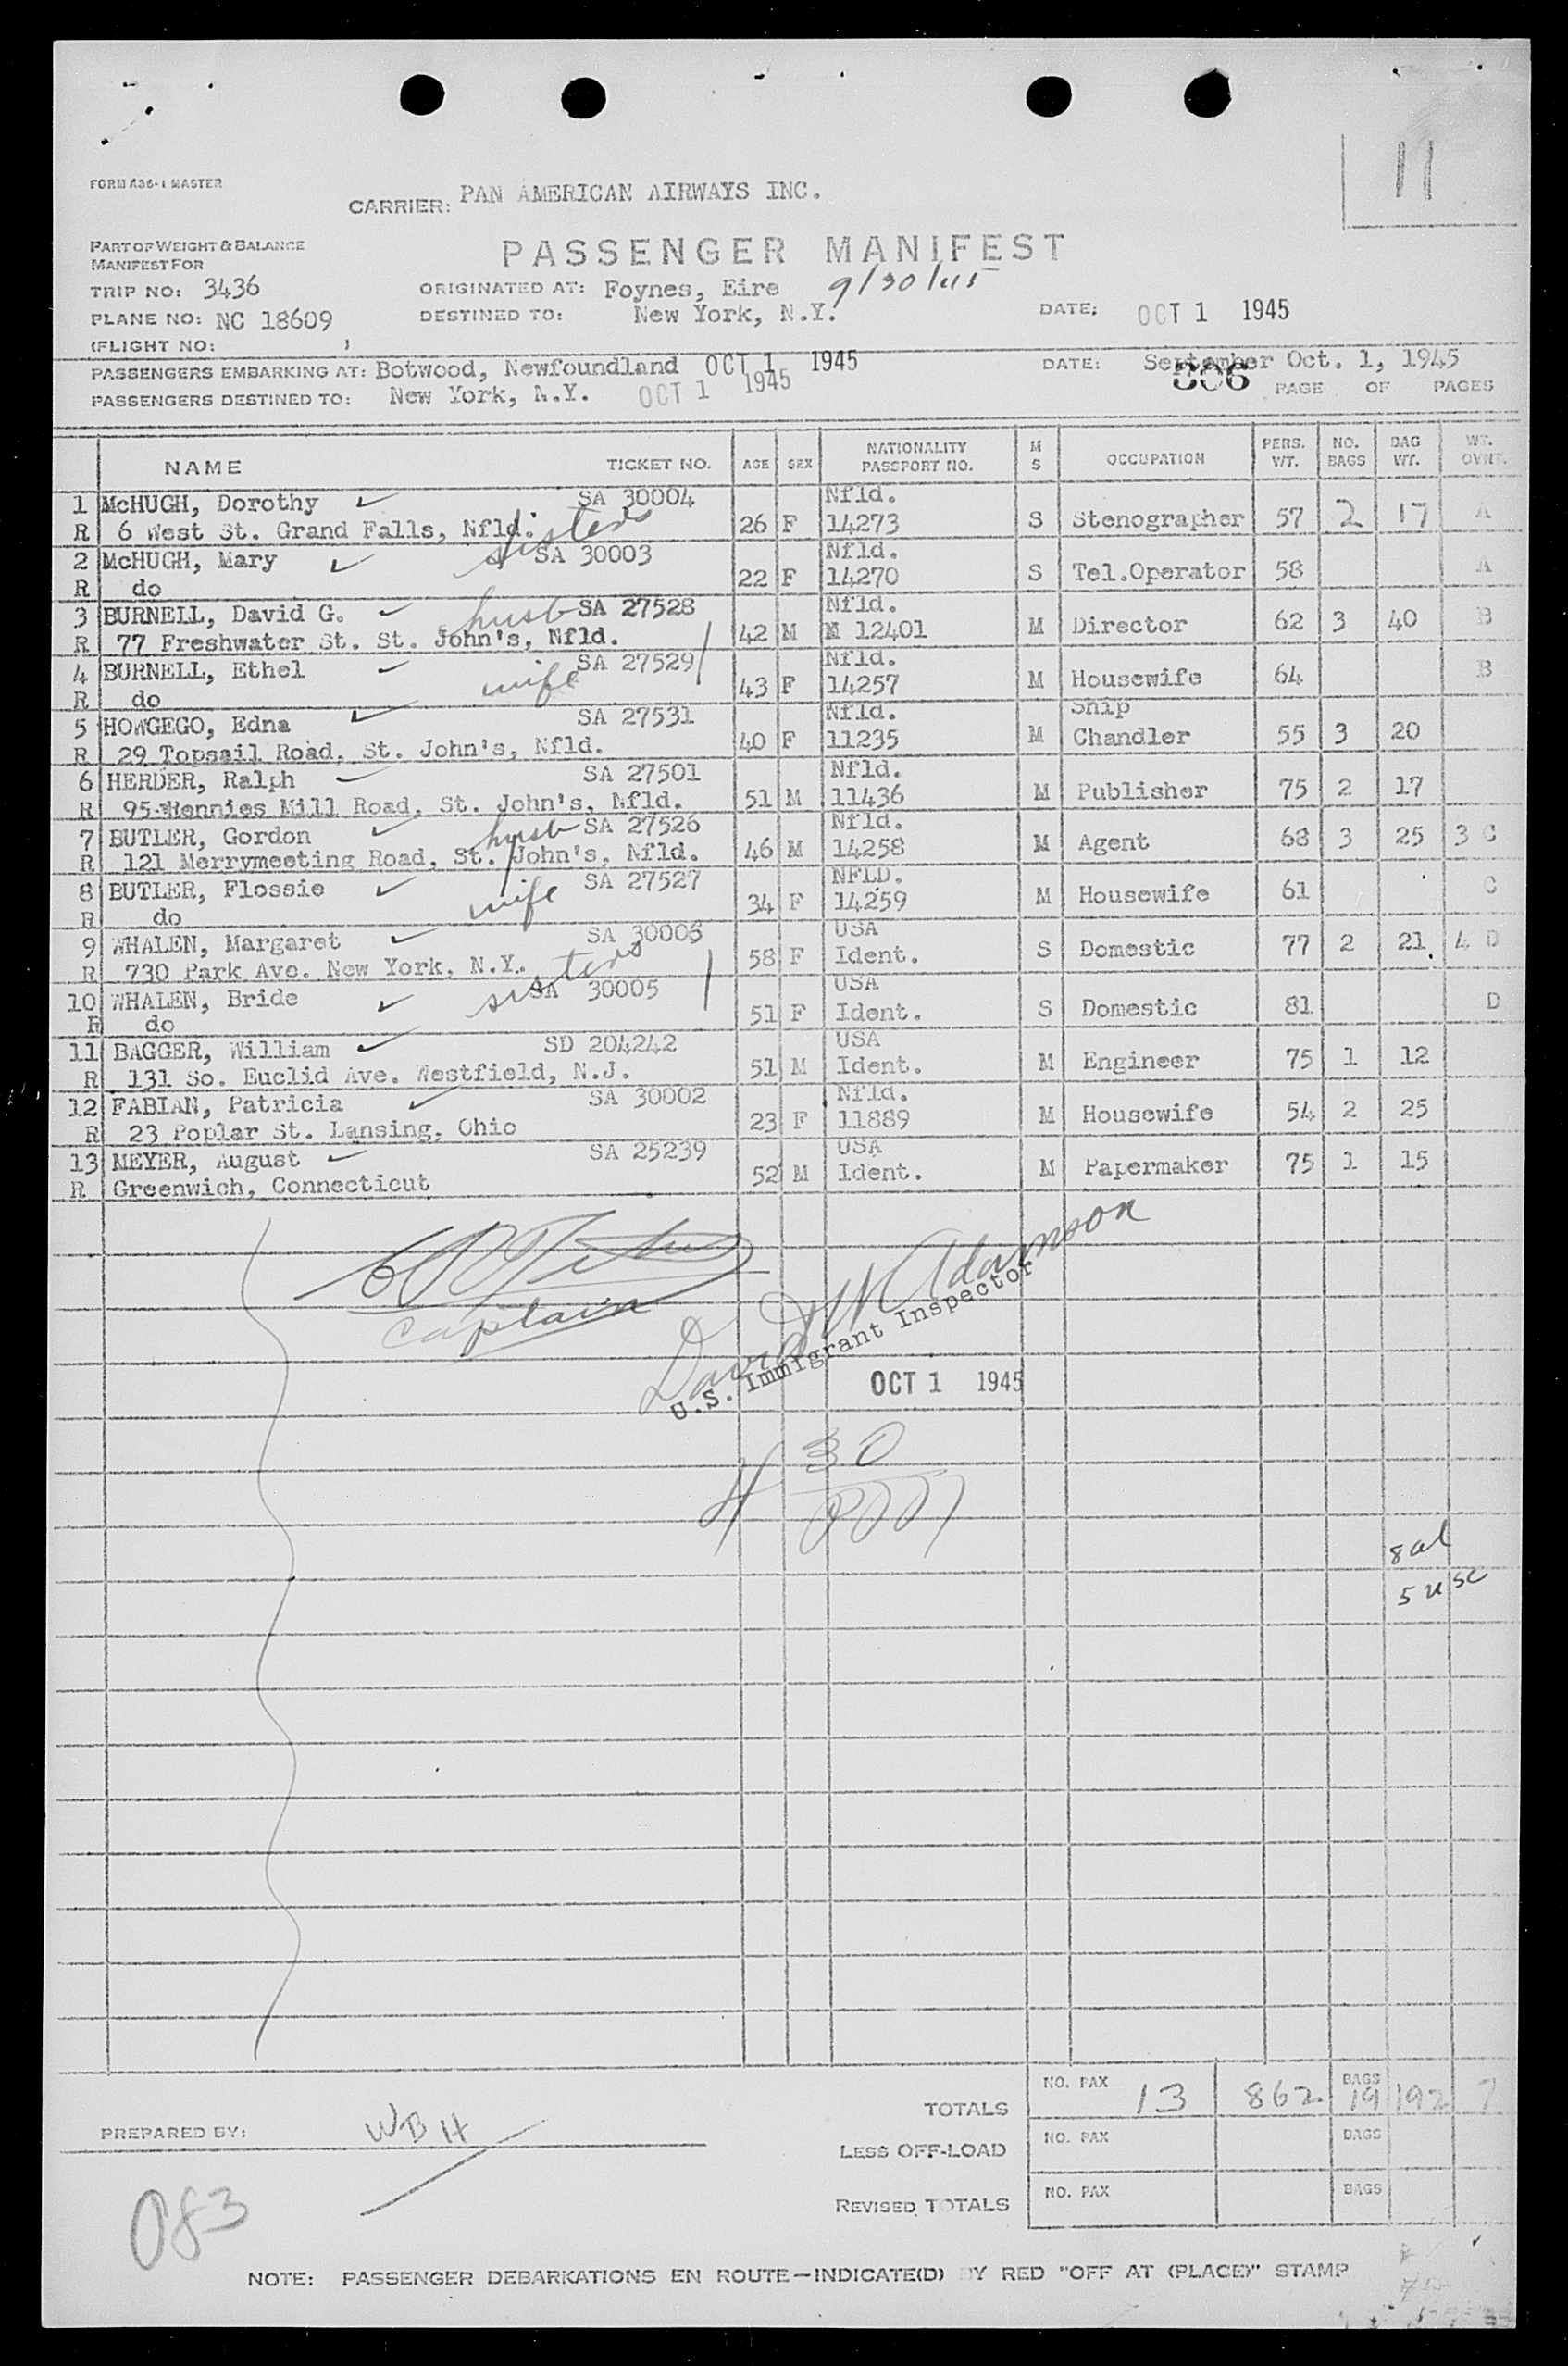 11
FORM 436-1 MASTER
CARRIER: PAN AMERICAN AIRWAYS INC.
PART OF WEIGHT & BALANCE
MANIFEST FOR
PASSENGER MANIFEST
TRIP NO: 3436
ORIGINATED AT: Foynes, Eire 9/30/45
PLANE NO: NC 18609
DESTINED TO: New York, N.Y.
DATE: OCT 1 1945
(FLIGHT NO: )
PASSENGERS EMBARKING AT: Botwood, Newfoundland OCT 1 1945 DATE: September Oct. 1, 1945
PASSENGERS DESTINED TO: New York, N.Y. OCT 1 1945 306 PAGE OF PAGES
NAME TICKET NO. AGE SEX NATIONALITY PASSPORT NO. M S OCCUPATION PERS. WT. NO. BAGS BAG WT. WT. OVNT.
1 McHUGH, Dorothy SA 30004 Nfld.
R 6 West St. Grand Falls, Nfld. sisters 26 F 14273 S Stenographer 57 2 17 A
2 McHUGH, Mary SA 30003 Nfld.
R do 22 F 14270 S Tel.Operator 58 A
3 BURNELL, David G. husb SA 27528 Nfld.
R 77 Freshwater St. St. John's, Nfld. 42 M M 12401 M Director 62 3 40 B
4 BURNELL, Ethel wife SA 27529 Nfld.
R do 43 F 14257 M Housewife 64 B
5 HOWGEGO, Edna SA 27531 Nfld. Ship
R 29 Topsail Road, St. John's, Nfld. 40 F 11235 M Chandler 55 3 20
6 HERDER, Ralph SA 27501 Nfld.
R 95 Rennies Mill Road, St. John's, Nfld. 51 M 11436 M Publisher 75 2 17
7 BUTLER, Gordon husb SA 27526 Nfld.
R 121 Merrymeeting Road, St. John's, Nfld. 46 M 14258 M Agent 68 3 25 3 C
8 BUTLER, Flossie wife SA 27527 NFLD.
R do 34 F 14259 M Housewife 61 C
9 WHALEN, Margaret SA 30006 USA
R 730 Park Ave. New York, N.Y. sisters 58 F Ident. S Domestic 77 2 21 4 D
10 WHALEN, Bride SA 30005 USA
R do 51 F Ident. S Domestic 81 D
11 BAGGER, William SD 204242 USA
R 131 So. Euclid Ave. Westfield, N.J. 51 M Ident. M Engineer 75 1 12
12 FABIAN, Patricia SA 30002 Nfld.
R 23 Poplar St. Lansing, Ohio 23 F 11889 M Housewife 54 2 25
13 MEYER, August SA 25239 USA
R Greenwich, Connecticut 52 M Ident. M Papermaker 75 1 15
Captain
David W Adamson
U.S. Immigrant Inspector
OCT 1 1945
30
8 al
5 usc
TOTALS NO. PAX 13 862 BAGS 19 192 7
PREPARED BY: WBH
LESS OFF-LOAD NO. PAX BAGS
REVISED TOTALS NO. PAX BAGS
083
NOTE: PASSENGER DEBARKATIONS EN ROUTE—INDICATE(D) BY RED "OFF AT (PLACE)" STAMP